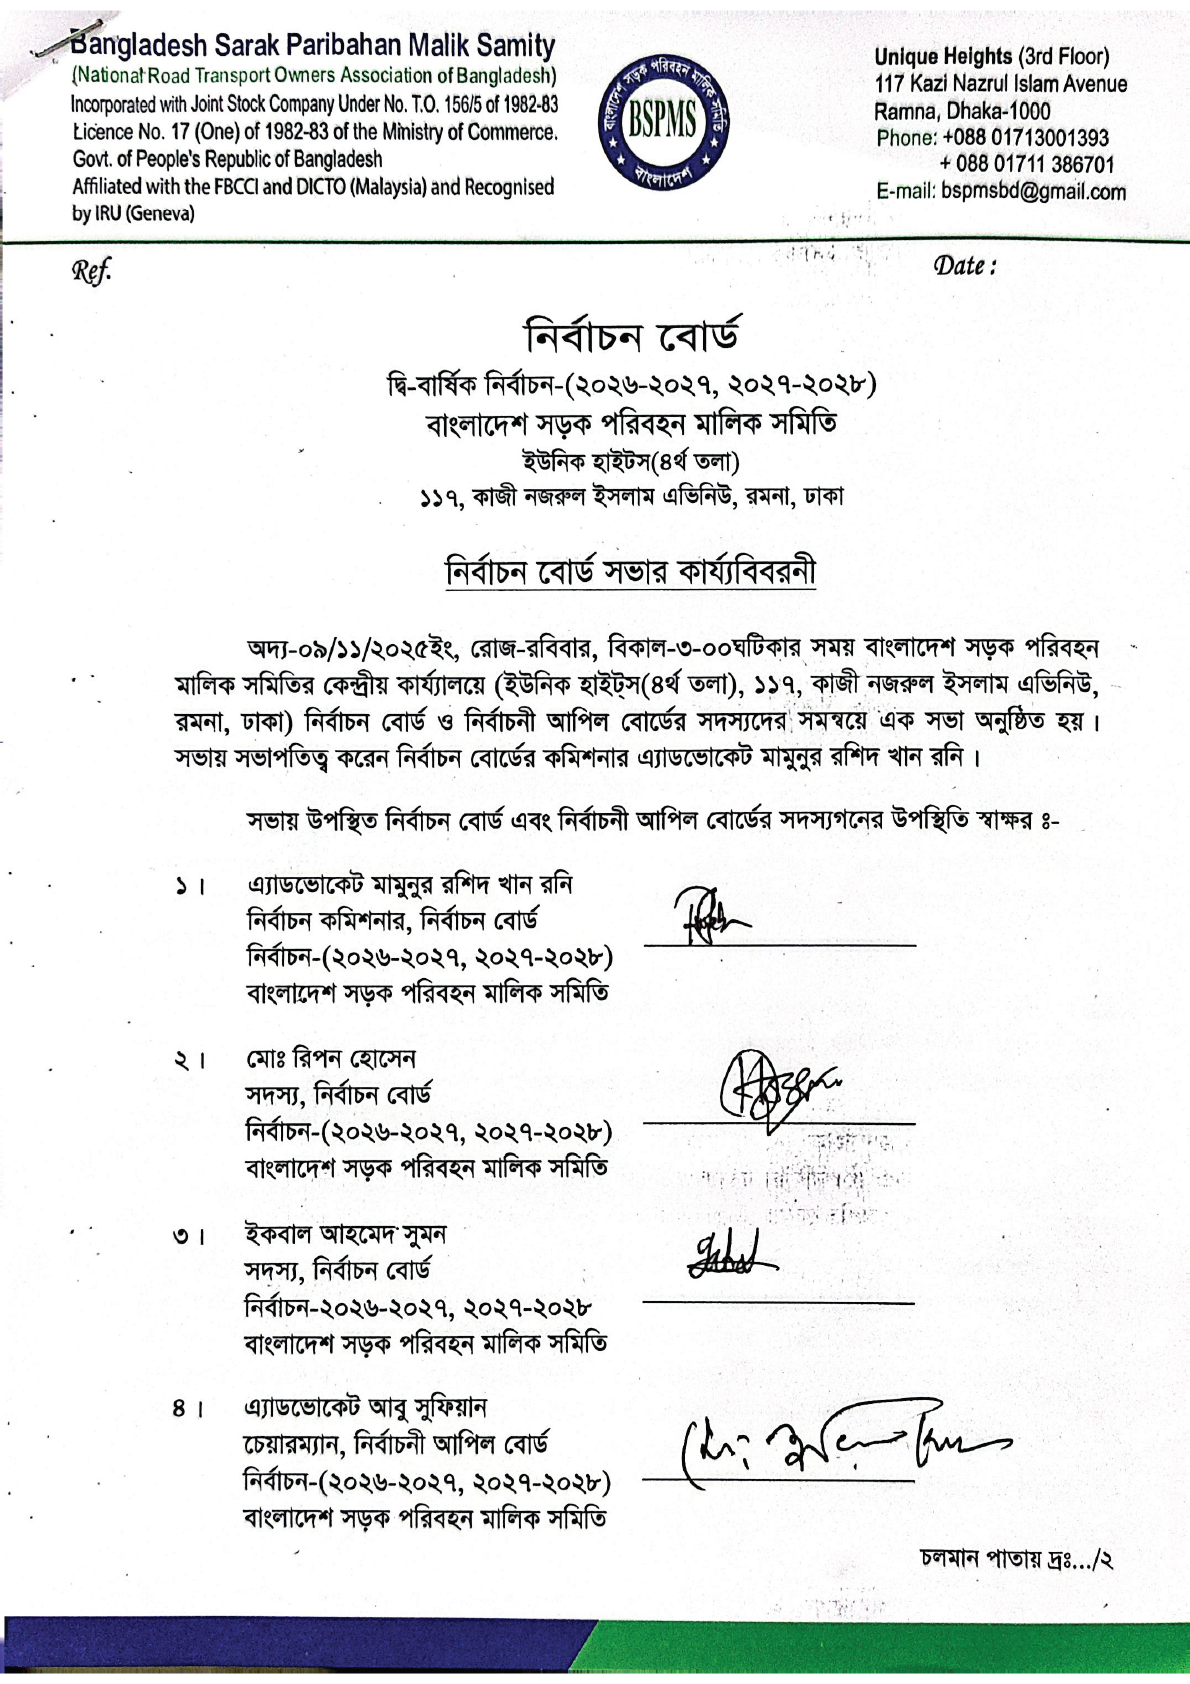 Bangladesh Sarak Paribahan Malik Samity
(National Road Transport Owners Association of Bangladesh)
Incorporated with Joint Stock Company Under No. T.O. 156/5 of 1982-83
Licence No. 17 (One) of 1982-83 of the Ministry of Commerce.
Govt. of People's Republic of Bangladesh
Affiliated with the FBCCI and DICTO (Malaysia) and Recognised
by IRU (Geneva)
বাংলাদেশ সড়ক পরিবহন মালিক সমিতি
BSPMS
বাংলাদেশ
Unique Heights (3rd Floor)
117 Kazi Nazrul Islam Avenue
Ramna, Dhaka-1000
Phone: +088 01713001393
+ 088 01711 386701
E-mail: bspmsbd@gmail.com
Ref.
Date :
নির্বাচন বোর্ড
দ্বি-বার্ষিক নির্বাচন-(২০২৬-২০২৭, ২০২৭-২০২৮)
বাংলাদেশ সড়ক পরিবহন মালিক সমিতি
ইউনিক হাইটস(৪র্থ তলা)
১১৭, কাজী নজরুল ইসলাম এভিনিউ, রমনা, ঢাকা
নির্বাচন বোর্ড সভার কার্য্যবিবরনী
অদ্য-০৯/১১/২০২৫ইং, রোজ-রবিবার, বিকাল-৩-০০ঘটিকার সময় বাংলাদেশ সড়ক পরিবহন
মালিক সমিতির কেন্দ্রীয় কার্য্যালয়ে (ইউনিক হাইট্স(৪র্থ তলা), ১১৭, কাজী নজরুল ইসলাম এভিনিউ,
রমনা, ঢাকা) নির্বাচন বোর্ড ও নির্বাচনী আপিল বোর্ডের সদস্যদের সমন্বয়ে এক সভা অনুষ্ঠিত হয়।
সভায় সভাপতিত্ব করেন নির্বাচন বোর্ডের কমিশনার এ্যাডভোকেট মামুনুর রশিদ খান রনি।
সভায় উপস্থিত নির্বাচন বোর্ড এবং নির্বাচনী আপিল বোর্ডের সদস্যগনের উপস্থিতি স্বাক্ষর ঃ-
১। এ্যাডভোকেট মামুনুর রশিদ খান রনি
নির্বাচন কমিশনার, নির্বাচন বোর্ড
নির্বাচন-(২০২৬-২০২৭, ২০২৭-২০২৮)
বাংলাদেশ সড়ক পরিবহন মালিক সমিতি
২। মোঃ রিপন হোসেন
সদস্য, নির্বাচন বোর্ড
নির্বাচন-(২০২৬-২০২৭, ২০২৭-২০২৮)
বাংলাদেশ সড়ক পরিবহন মালিক সমিতি
৩। ইকবাল আহমেদ সুমন
সদস্য, নির্বাচন বোর্ড
নির্বাচন-২০২৬-২০২৭, ২০২৭-২০২৮
বাংলাদেশ সড়ক পরিবহন মালিক সমিতি
৪। এ্যাডভোকেট আবু সুফিয়ান
চেয়ারম্যান, নির্বাচনী আপিল বোর্ড
নির্বাচন-(২০২৬-২০২৭, ২০২৭-২০২৮)
বাংলাদেশ সড়ক পরিবহন মালিক সমিতি
চলমান পাতায় দ্রঃ.../২